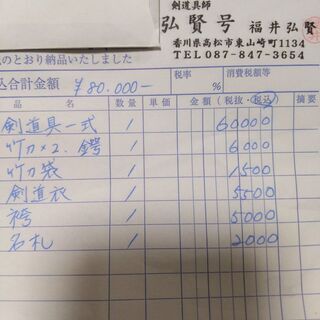 剣道具師
弘賢号 福井弘賢
香川県高松市東山崎町1134
TEL087-847-3654
のとおり納品いたしました
込合計金額 ¥80.000- 税率 % 消費税額等
品名 数量 単価 金額(税抜・税込) 摘要
剣道具一式 1 60000
竹刀×2.鍔 1 6000
竹刀袋 1 1500
剣道衣 1 5500
袴 1 5000
名札 1 2000